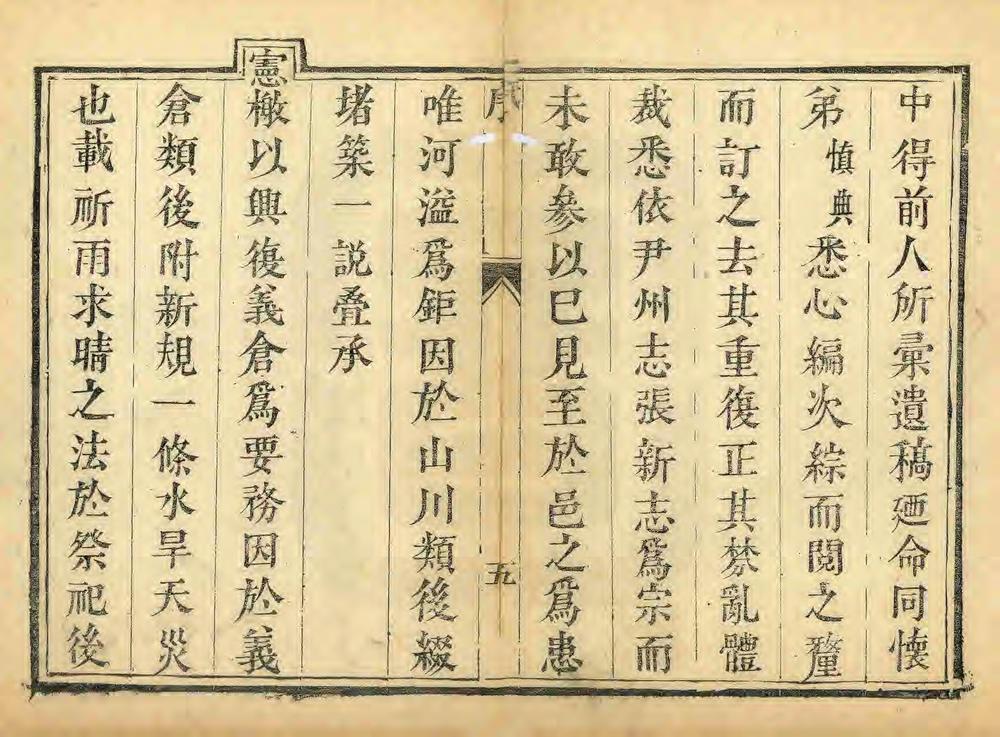 中得前人所彙遺稿廼命同懷
弟慎典悉心編次綜而閱之釐
而訂之去其重復正其棼亂體
裁悉依尹州志張新志爲宗而
未敢參以已見至於邑之爲患
序
五
唯河溢爲鉅因於山川類後綴
堵築一說叠承
憲檄以興復義倉爲要務因於義
倉類後附新規一條水旱天災
也載祈雨求晴之法於祭祀後